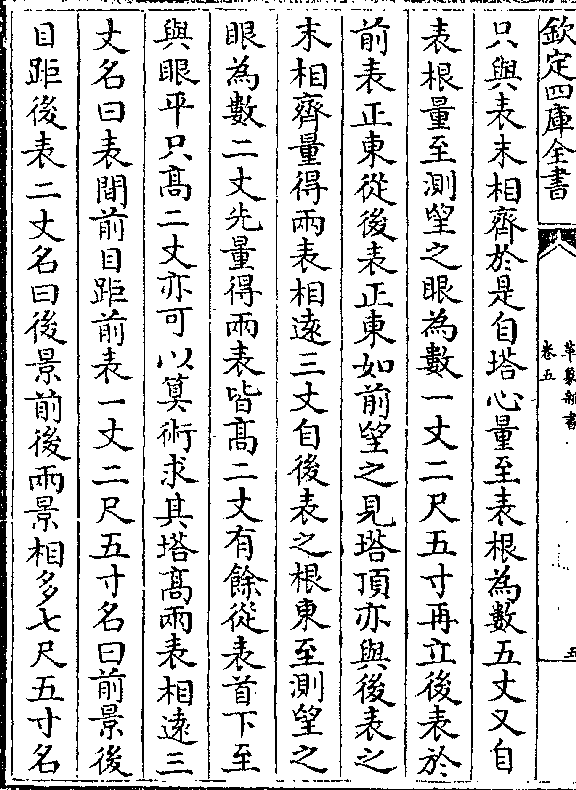 欽定四庫全書
卷五
只與表末相齊於是自塔心量至表根為數五丈又自
表根量至測望之眼為數一丈二尺五寸再立後表於
前表正東從後表正東如前望之見塔頂亦與後表之
末相齊量得兩表相逺三丈自後表之根東至測望之
眼為數二丈先量得兩表皆髙二丈有餘從表首下至
與眼平只髙二丈亦可以筭術求其塔髙兩表相逺三
丈名曰表間前目距前表一丈二尺五寸名曰前景後
目距後表二丈名曰後景前後兩景相多七尺五寸名